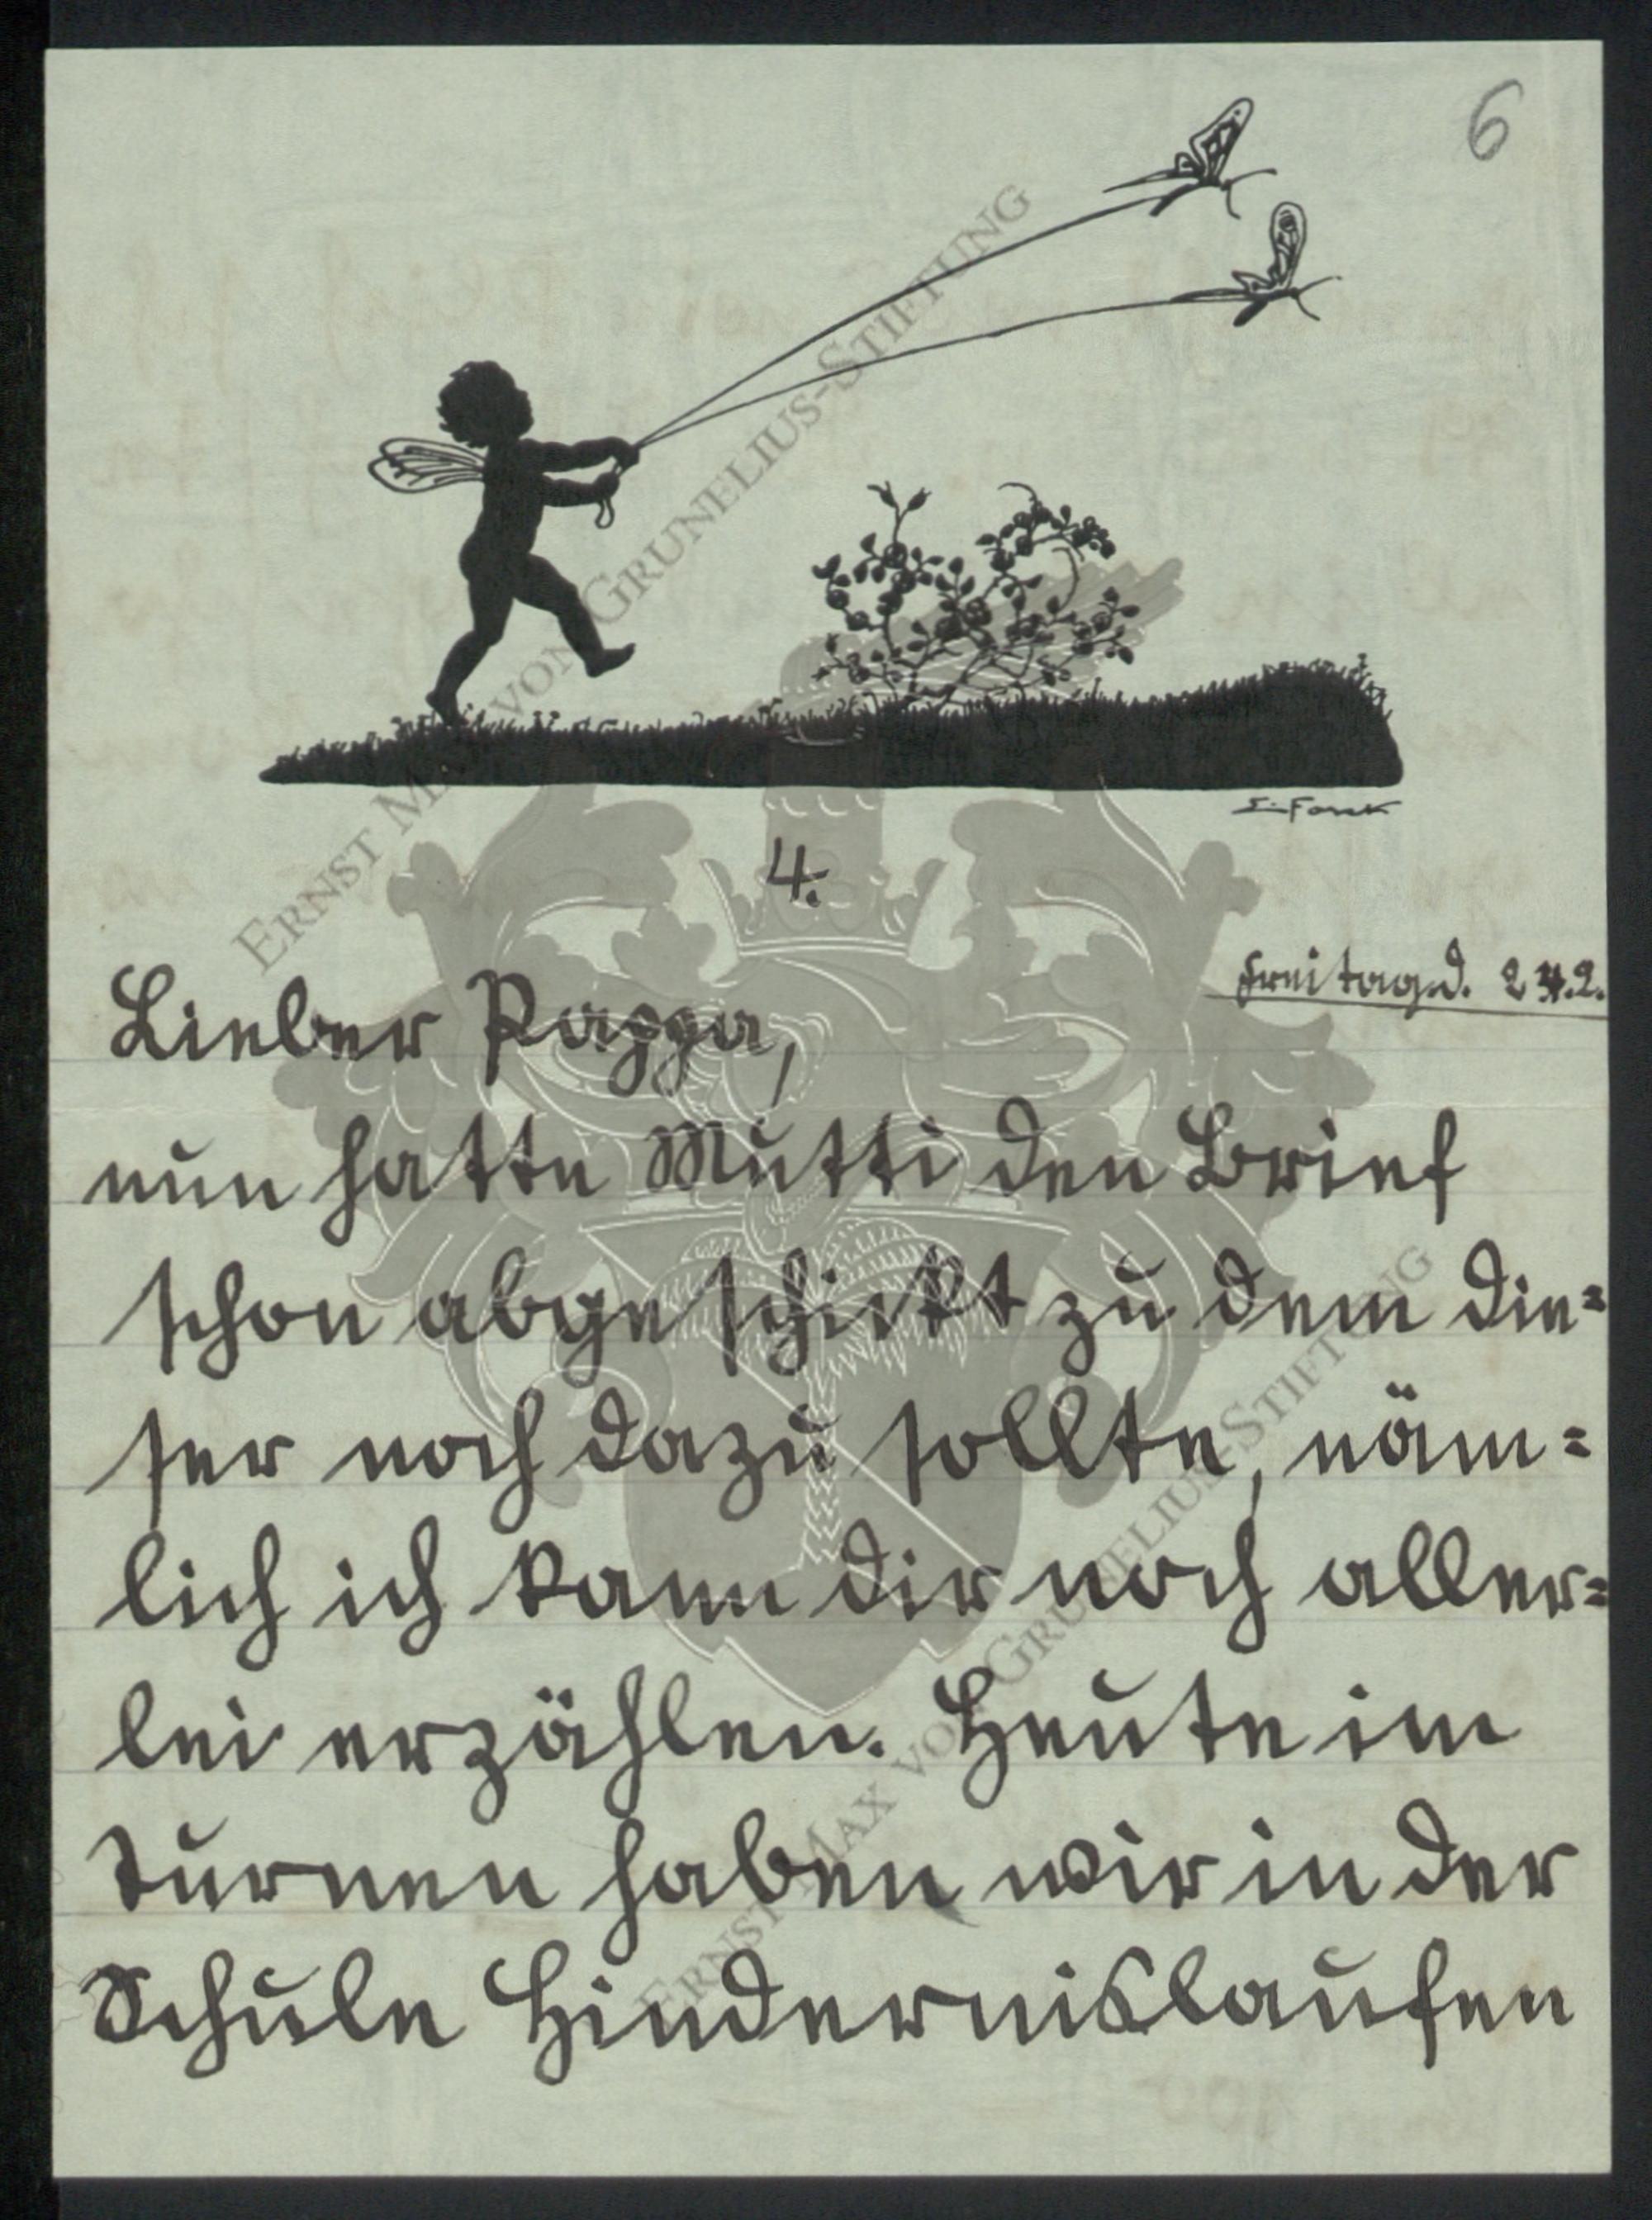 6
E. Forck
4.
Freitag d. 24.2.
Lieber Pappa,
nun hatte Mutti den Brief
schon abgeschickt zu dem die=
ser noch dazu sollte, näm=
lich ich kann dir noch aller=
lei erzählen. Heute im
Turnen haben wir in der
Schule Hindernislaufen
ERNST MAX VON GRUNELIUS-STIFTUNG
ERNST MAX VON GRUNELIUS-STIFTUNG